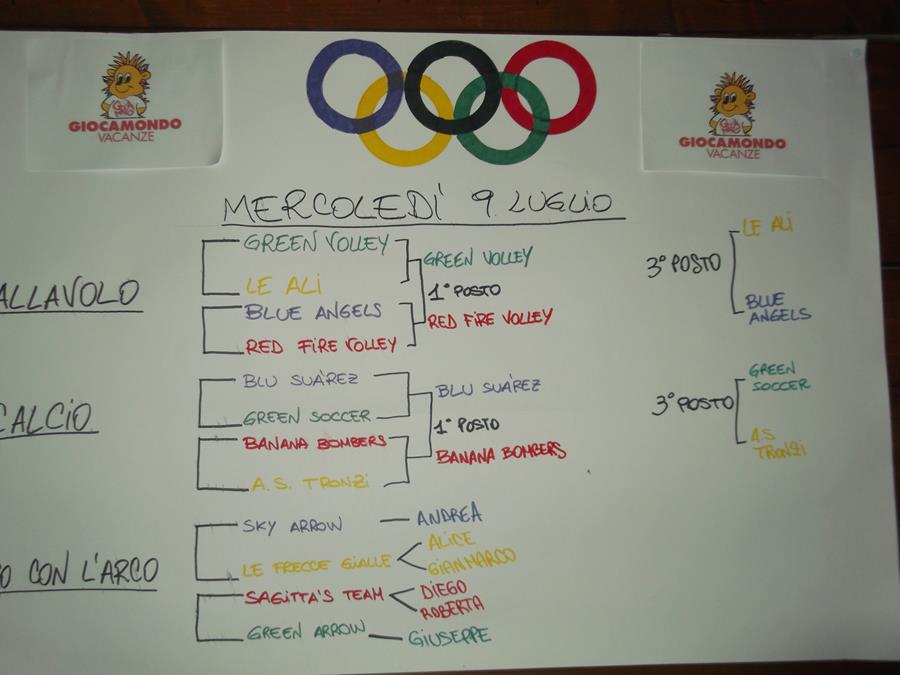 GIOCAMONDO
VACANZE
GIOCAMONDO
VACANZE
MERCOLEDÌ 9 LUGLIO
ALLAVOLO
GREEN VOLLEY
LE ALI
BLUE ANGELS
RED FIRE VOLLEY
GREEN VOLLEY
1° POSTO
RED FIRE VOLLEY
3° POSTO
LE ALI
BLUE
ANGELS
CALCIO
BLU SUÁREZ
GREEN SOCCER
BANANA BOMBERS
A.S. TRONZI
BLU SUÁREZ
1° POSTO
BANANA BOMBERS
3° POSTO
GREEN
SOCCER
A.S.
TRONZI
O CON L'ARCO
SKY ARROW
ANDREA
LE FRECCE GIALLE
ALICE
GIANMARCO
SAGITTA'S TEAM
DIEGO
ROBERTA
GREEN ARROW
GIUSEPPE